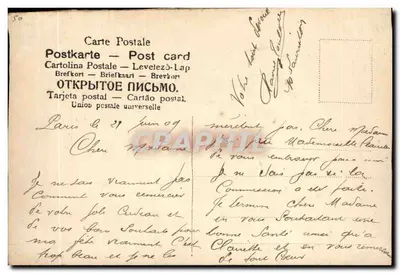 50
Carte Postale
Postkarte — Post card
Cartolina Postale — Levelező-Lap
Brefkort — Briefkaart — Brevkort
ОТКРЫТОЕ ПИСЬМО.
Tarjeta postal — Cartão postal
Union postale universelle
Paris le 29 juin 09
Cher Madame
Je ne sais vraiment pas
Comment vous remercier
de votre joli Cadeau et
de vos bons Souhaits pour
ma fête vraiment C'est
trop beau et je ne les
méritent pas. Cher Madame
Mademoiselle
de vous embrasser pour moi
Je ne sais pas si la
Commission a été faite.
Je termine chere Madame
en vous Souhaitant une
bonne Santé ainsi qu'a
et en vous
de tout Cœur
Votre tout
PRCARTES